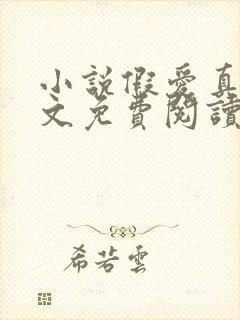 小說假愛真
文免費閱讀
希若雲